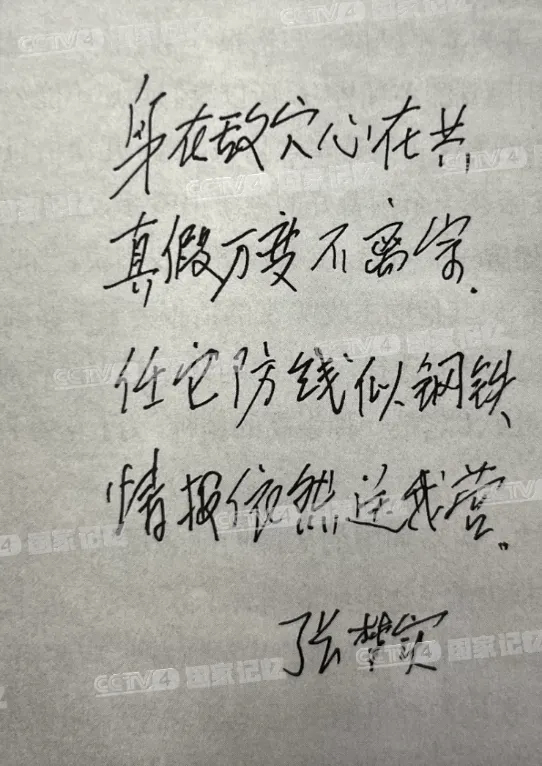 身在敌穴心在共
真假万变不离宗.
任它防线似钢铁、
情报依然送我营。
张梦实
CCTV4 国家记忆